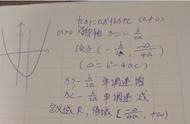 f(x)=ax²+bx+c (a≠0)
a>0 对称轴 x=-b/2a
顶点 (-b/2a, -△/4a)
(△=b²-4ac)
x>-b/2a 单调递增
x<-b/2a 单调递减
定义域R, 值域[-△/4a, +∞)